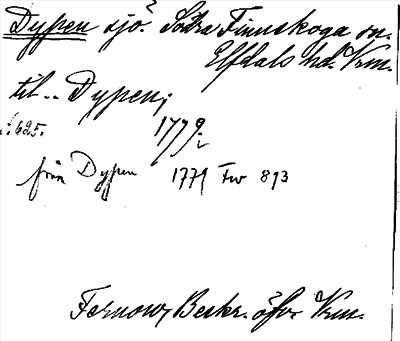 Dypen sjö. Södra Finnskoga sn.
Elfdals hd. Vrm.
til.. Dypen;
s. 625. 1779.
från Dypen 1779 Fw 813
Fernow, Beskr. öfv. Vrm.